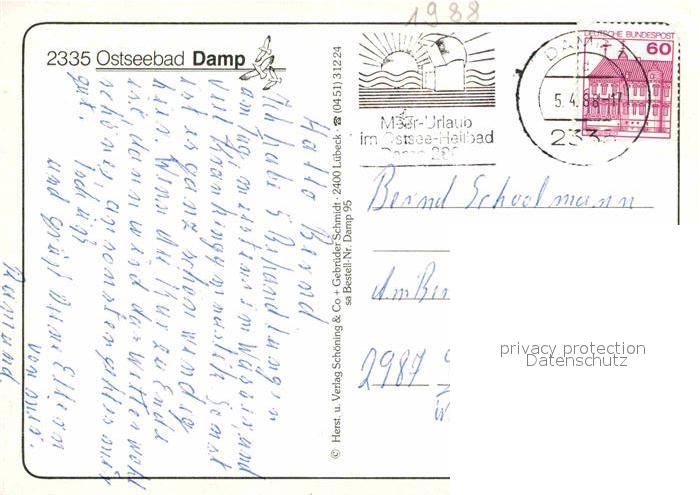 1988
2335 Ostseebad Damp
Hallo Bernd
Ich habe 5 Behandlungen
am Tag meistens im Wasser und
viel Krankengymnastik. Sonst
ist es ganz schön windig
hier. Wenn die Kur zu Ende
ist dann wird das Wetter wohl
schöner, ansonsten geht es mir
gut. Tschüß
und grüß Deine Eltern
von mir.
© Herst. u. Verlag Schöning & Co + Gebrüder Schmidt · 2400 Lübeck · ☎ (04 51) 3 12 24
sa Bestell-Nr. Damp 95
Meer-Urlaub
im Ostsee-Heilbad
DAMP
5.4.88-17
2335
DEUTSCHE BUNDESPOST
60
Bernd Schoolmann
Am
2987
privacy protection
Datenschutz